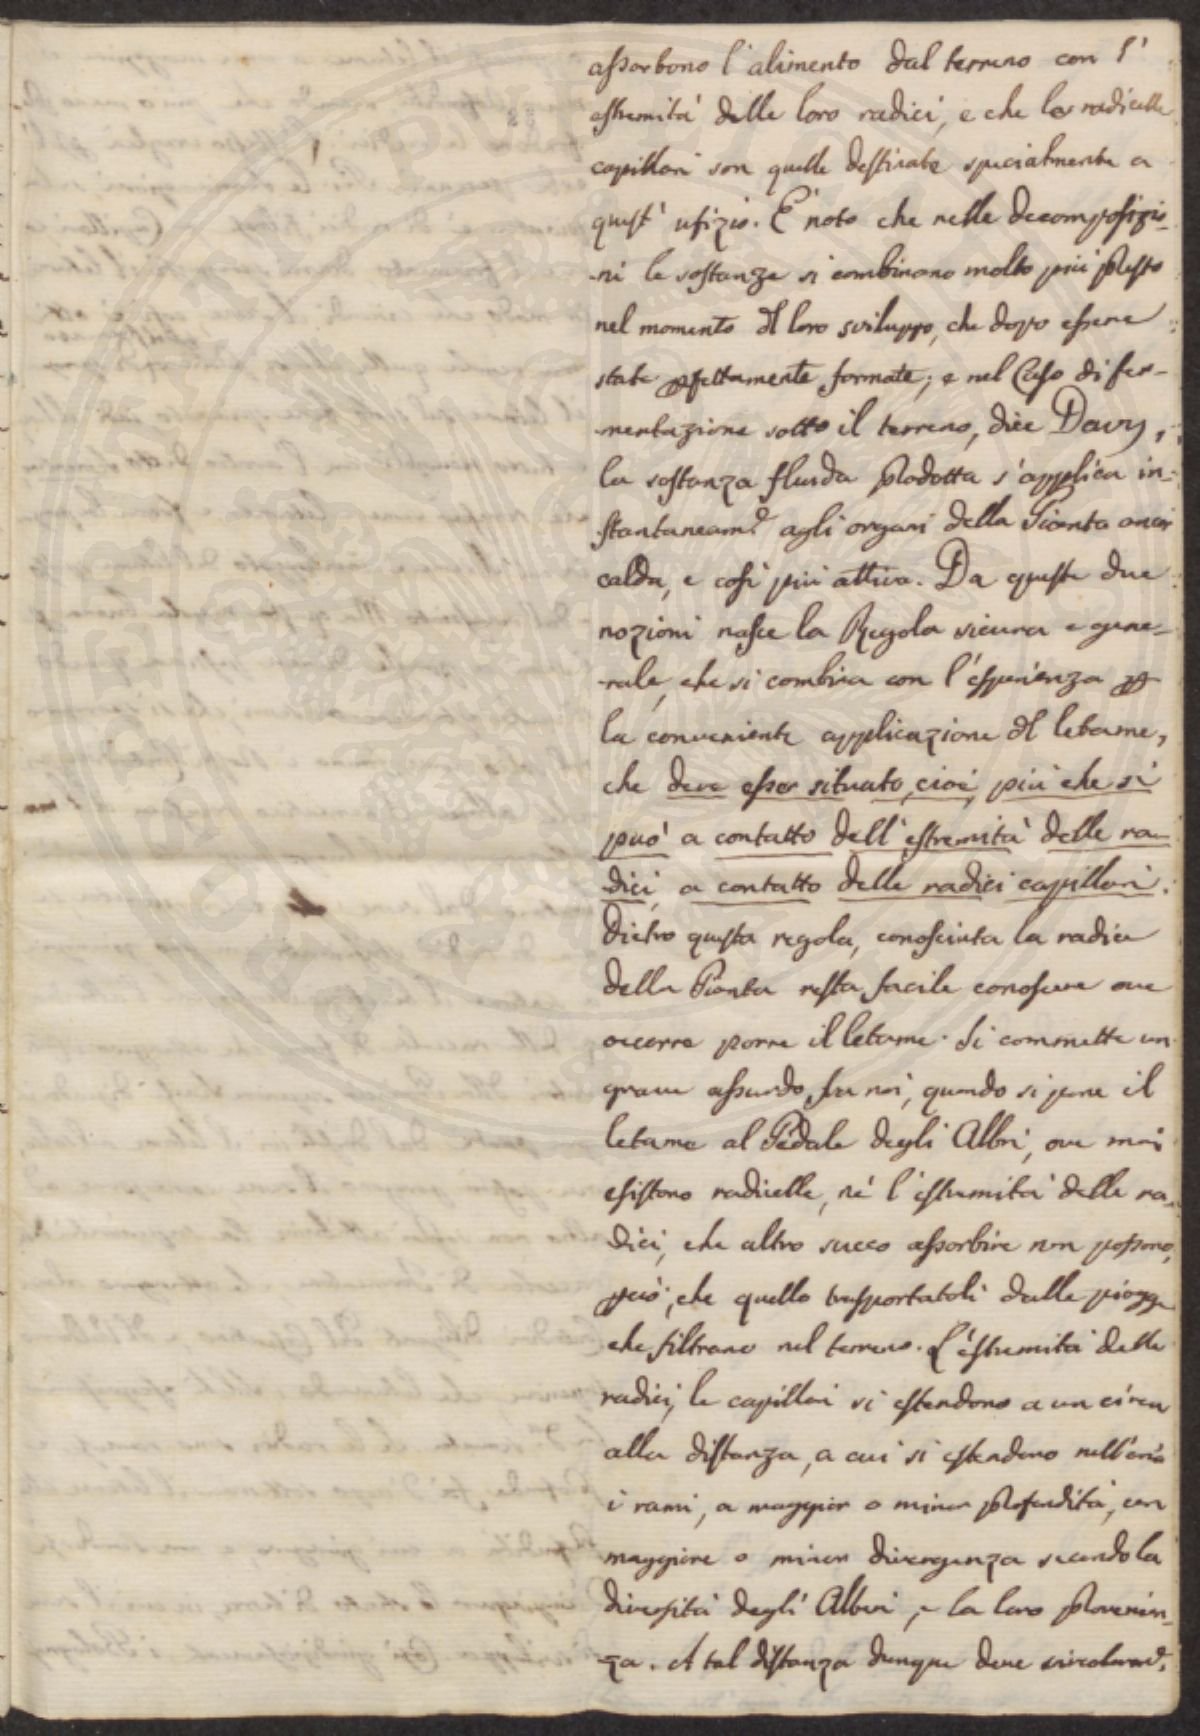 assorbono l'alimento dal terreno con l'
estremità delle loro radici, e che le radicelle
capillari son quelle destinate specialmente a
quest' ufizio. È noto che nelle decomposizio-
-ni le sostanze si combinano molto più presto
nel momento dl loro sviluppo, che dopo essere
state pfettamente formate; e nel Caso di fer-
-mentazione sotto il terreno, dice Davy,
la sostanza fluida prodotta s'applica in-
-stantaneamᵉ agli organi della Pianta ancor
calda, e così più attiva. Da queste due
nozioni nasce la Regola sicura e gene-
-rale, che si combina con l'esperienza p
la conveniente applicazione dl letame,
che deve esser situato, cioè, più che si
può a contatto dell'estremità delle ra-
-dici, a contatto delle radici capillari.
Dietro questa regola, conosciuta la radice
della Pianta resta facile conoscere ove
occorre porre il letame. Si commette un
grave assurdo fra noi, quando si pone il
letame al Pedale degli Albri, ove mai
esistono radicelle, nè l'estremità delle ra-
dici, che altro succo assorbire non possono,
pciò, che quello trasportatoli dalle piogge
che filtrano nel terreno. L'estremità delle
radici, le capillari si estendono a un circa
alla distanza, a cui si estendono nell'aria
i rami, a maggior o minor profondità, con
maggiore o minor divergenza secondo la
diversità degli Alberi, e la loro provenien-
-za. A tal distanza dunque deve